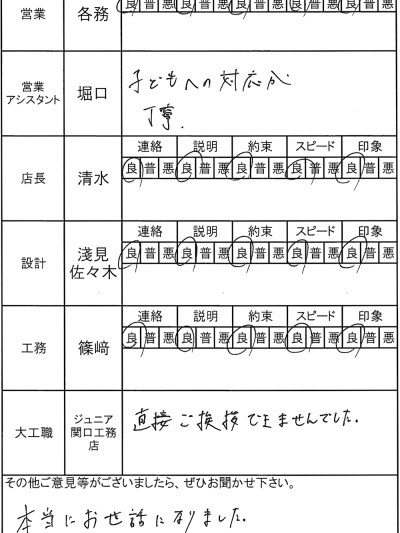 営業 各務 良 普 悪 良 普 悪 良 普 悪 良 普 悪 良 普 悪
営業
アシスタント
堀口
子どもへの対応が
丁寧.
連絡 説明 約束 スピード 印象
店長 清水 良 普 悪 良 普 悪 良 普 悪 良 普 悪 良 普 悪
連絡 説明 約束 スピード 印象
設計 淺見
佐々木
良 普 悪 良 普 悪 良 普 悪 良 普 悪 良 普 悪
連絡 説明 約束 スピード 印象
工務 篠﨑 良 普 悪 良 普 悪 良 普 悪 良 普 悪 良 普 悪
大工職
ジュニア
関口工務
店
直接ご挨拶できませんでした.
その他ご意見等がございましたら、ぜひお聞かせ下さい。
本当にお世話になりました.